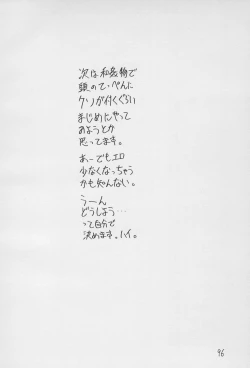 次は和姦物で
頭のてっぺんに
クソが付くぐらい
まじめにやって
みようとか
思ってます。
あーでもエロ
少なくなっちゃう
かも知んない。
うーん
どうしよう…
って自分で
決めます。ハイ。
96